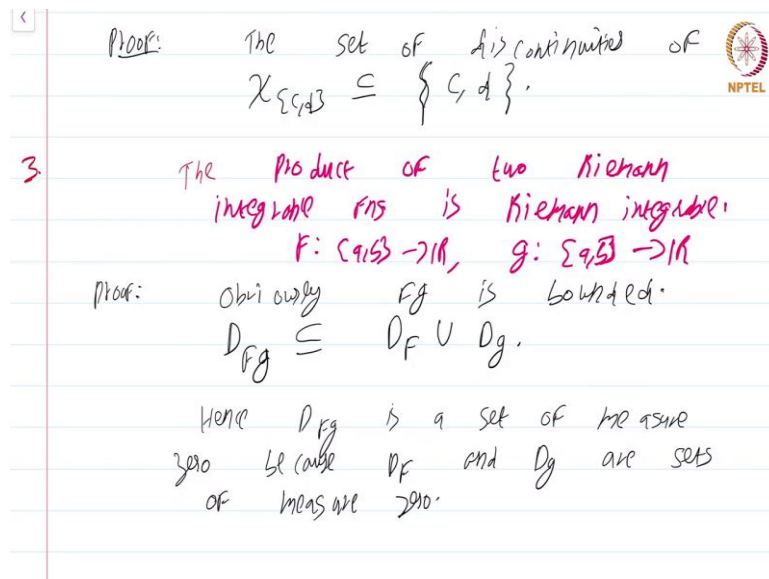 Proof: The set of discontinuities of
χ_{[c,d]} ⊆ {c, d}.
NPTEL
3. The product of two Riemann
integrable fns is Riemann integrable.
F: [a,b] -> ℝ, g: [a,b] -> ℝ
Proof: Obviously Fg is bounded.
D_{Fg} ⊆ D_F ∪ D_g.
Hence D_{Fg} is a set of measure
zero because D_F and D_g are sets
of measure zero.